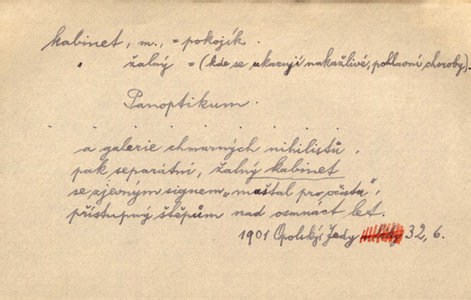 kabinet, m., = pokojík.
žalný = (kde se ukazují nakažlivé, pohlavní, choroby).
Panoptikum.
a galerie chmurných nihilistů,
pak separátní, žalný kabinet
se zjevným signem „maštal pro pčstu",
přístupný štěpům nad osmnáct let.
1901 Opolský: Jedy 32, 6.